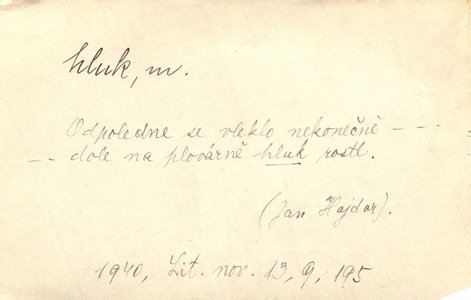 hluk, m.
Odpoledne se vleklo nekonečně - - -
- - dole na plovárně hluk rostl.
(Jan Hajdar).
1940, Lit. nov. 13, 9, 195